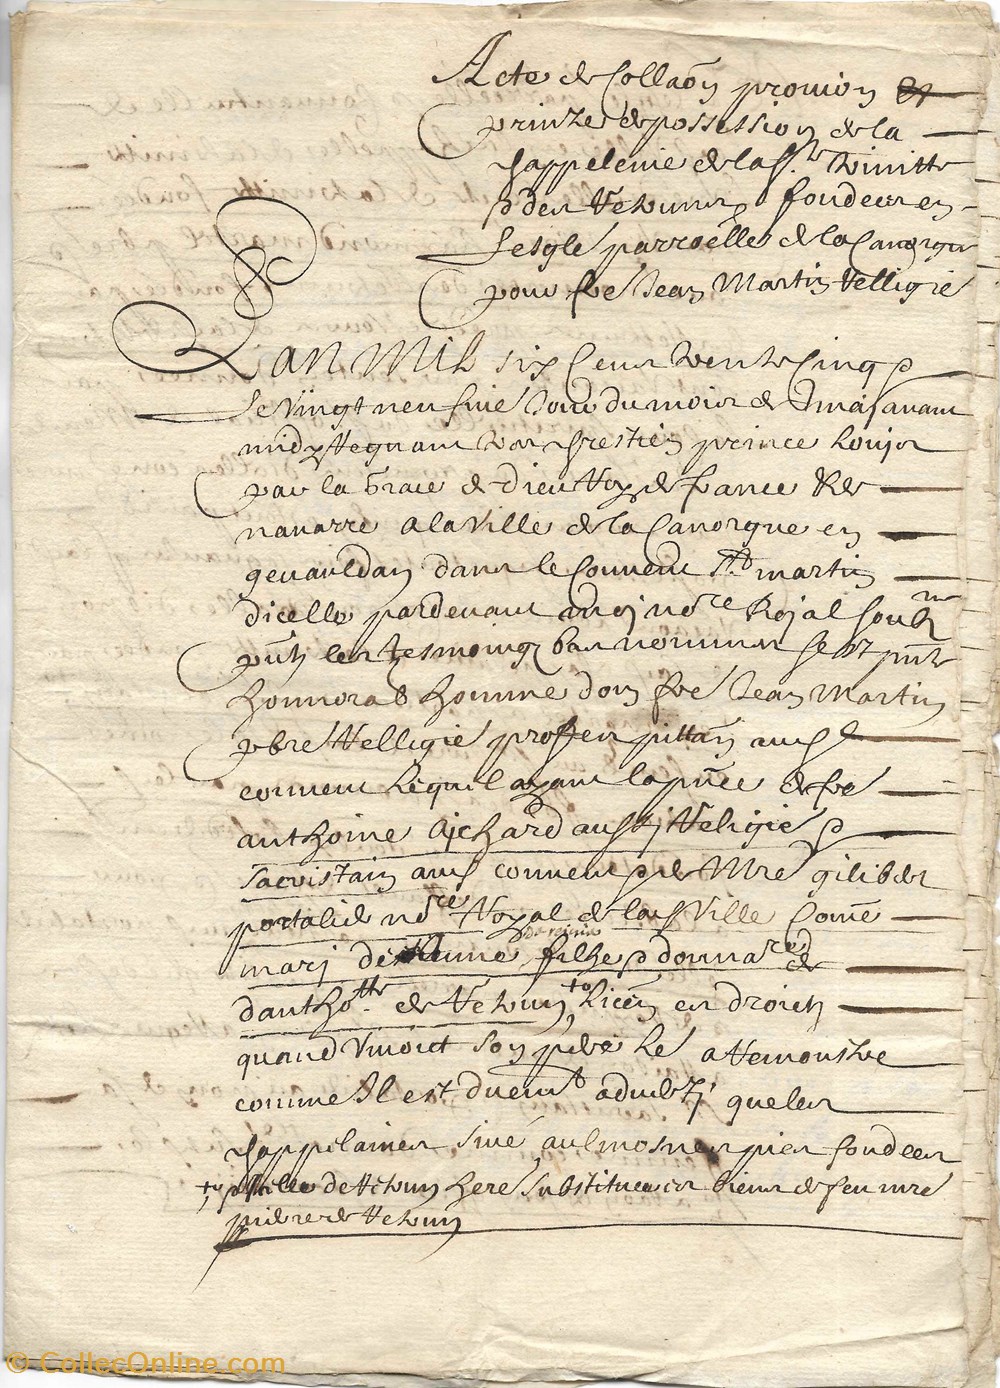 Acte de Collaōn provion et
prinze de possession de la
chappelenie de la Ste. trinitte
p des Retruns, fondees en
lesgle parroëlle de la Canorgue
pour fre Jean Martin Relligié
L'an mil six cens trente cinq p
Le vingt neufvie Jour du mois de may avant
midy Regnant tres crestien prince Louys
par la Grace de Dieu Roy de france & de
navarre a la ville de la Canorgue en
gevauldan dans le Couvent St martin
dicelle pardevant moy nore Royal soubz
pnt les tesmoingz bas nommes sest pnte
honnorab homme dom fre Jean Martin
pbre Relligié proffes pittan aud
couvent Lequel ayant la pnce de fre
anthoine ajchard aussy Religié p
sacristain aud couvent p de Mre gilibert
portalie nore Royal de lad Ville Come
mary de filhe p donnare de
danthotte de Retrun, Licen es droictz
quand vivoict son pere Le a Remonstre
comme Il est duemt adverty que les
chappelaines sive aulmosnes pies fondees
de Retrun here substituee es biens de feu mre
pierre de Retrun
© CollecOnline.com